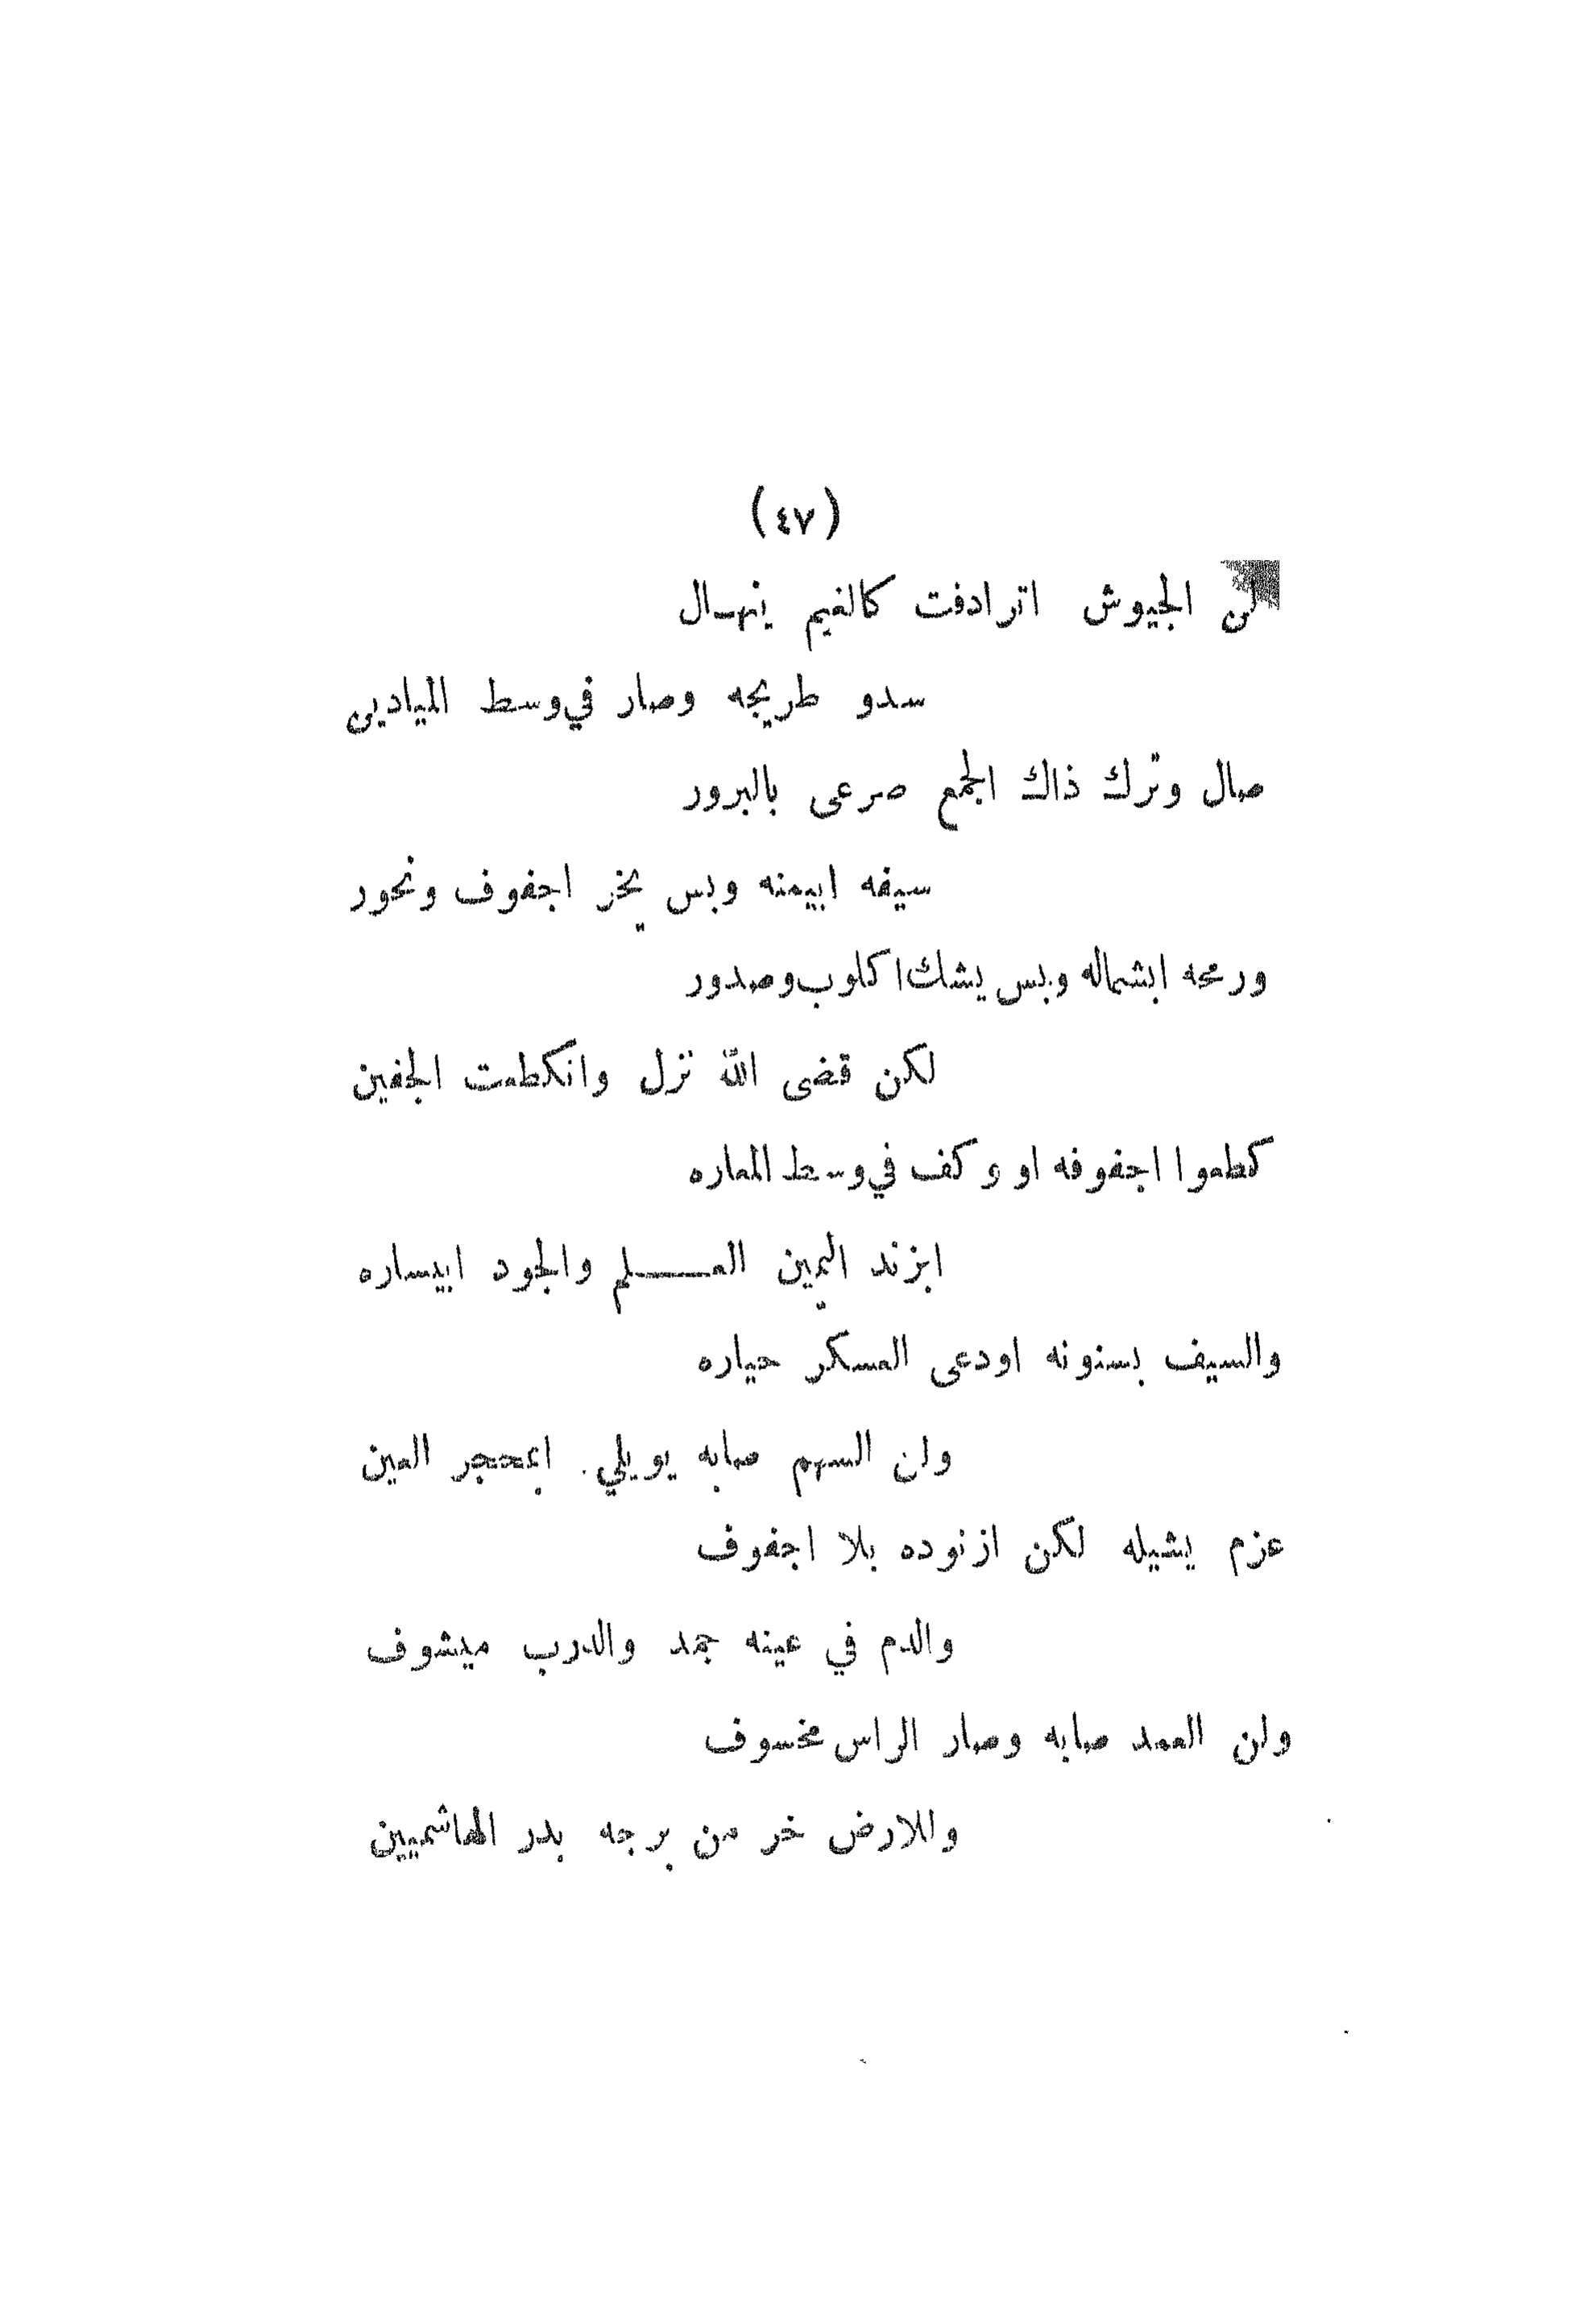 (٤٧)
لن الجيوش اترادفت كالغيم ينهـال
سدو طريجه وصار في وسط الميادين
صال وترك ذاك الجمع صرعى بالبرور
سيفه ابيمنه وبس يخر اجفوف ونحور
ورمحه ابشماله وبس يشك اكلوب وصدور
لكن قضى الله نزل وانكطعت الجفين
كطعوا اجفوفه او وكف في وسط الغاره
ابزند اليمين العـــلم والجود ابيساره
والسيف بسنونه اودعى العسكر حياره
ولن السهم صابه يويلي ابمحجر العين
عزم يشيله لكن ازنوده بلا اجفوف
والدم في عينه جمد والدرب ميشوف
ولن العمد صابه وصار الراس مخسوف
وللارض خر من برجه بدر الهاشميين